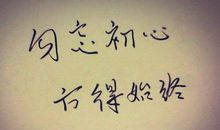 勿忘初心
方得始终